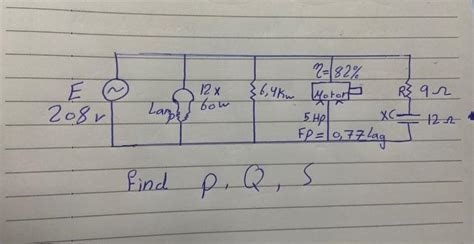 E
208 v
Lamp
12 x
60w
6,4Kw
η= 82%
Motor
5Hp
Fp = 0,77 Lag
R
9 Ω
XC
12 Ω
Find P, Q, S